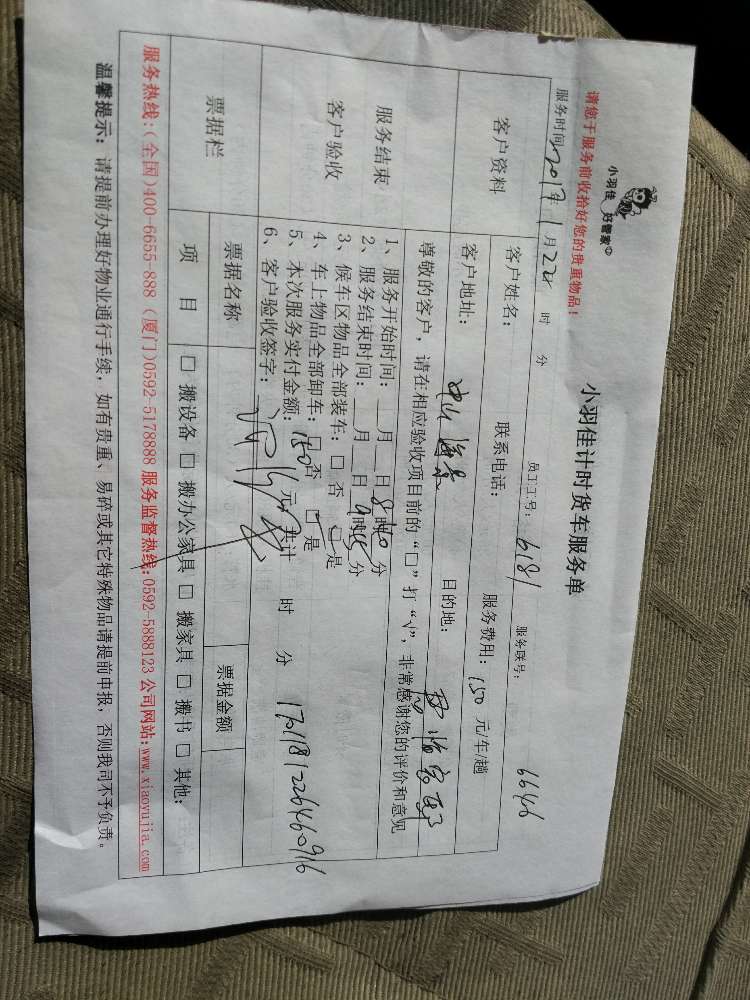 小羽佳 好管家
小羽佳计时货车服务单
请您于服务前收拾好您的贵重物品！
服务时间：2017年 1月22日 时 分 员工工号：6181 服务联号：6646
客户资料 客户姓名： 联系电话： 服务费用：150 元/车/趟
客户地址： 海景 目的地：
服务结束
客户验收
尊敬的客户，请在相应验收项目前的“□”打“√”，非常感谢您的评价和意见
1、服务开始时间： 月 日 8时40分
2、服务结束时间： 月 日 9时 分
3、候车区物品全部装车：□ 否 □ 是
4、车上物品全部卸车：□ 否 □ 是
5、本次服务实付金额：150 元 共计 时 分
6、客户验收签字： 1701181226460916
票据栏 票据名称 票据金额
项 目 □ 搬设备 □ 搬办公家具 □ 搬家具 □ 搬书 □ 其他：
服务热线：(全国)400-6655-888 (厦门)0592-5178888 服务监督热线：0592-5888123 公司网站：www.xiaoyujia.com
温馨提示：请提前办理好物业通行手续，如有贵重、易碎或其它特殊物品请提前申报，否则我司不予负责。